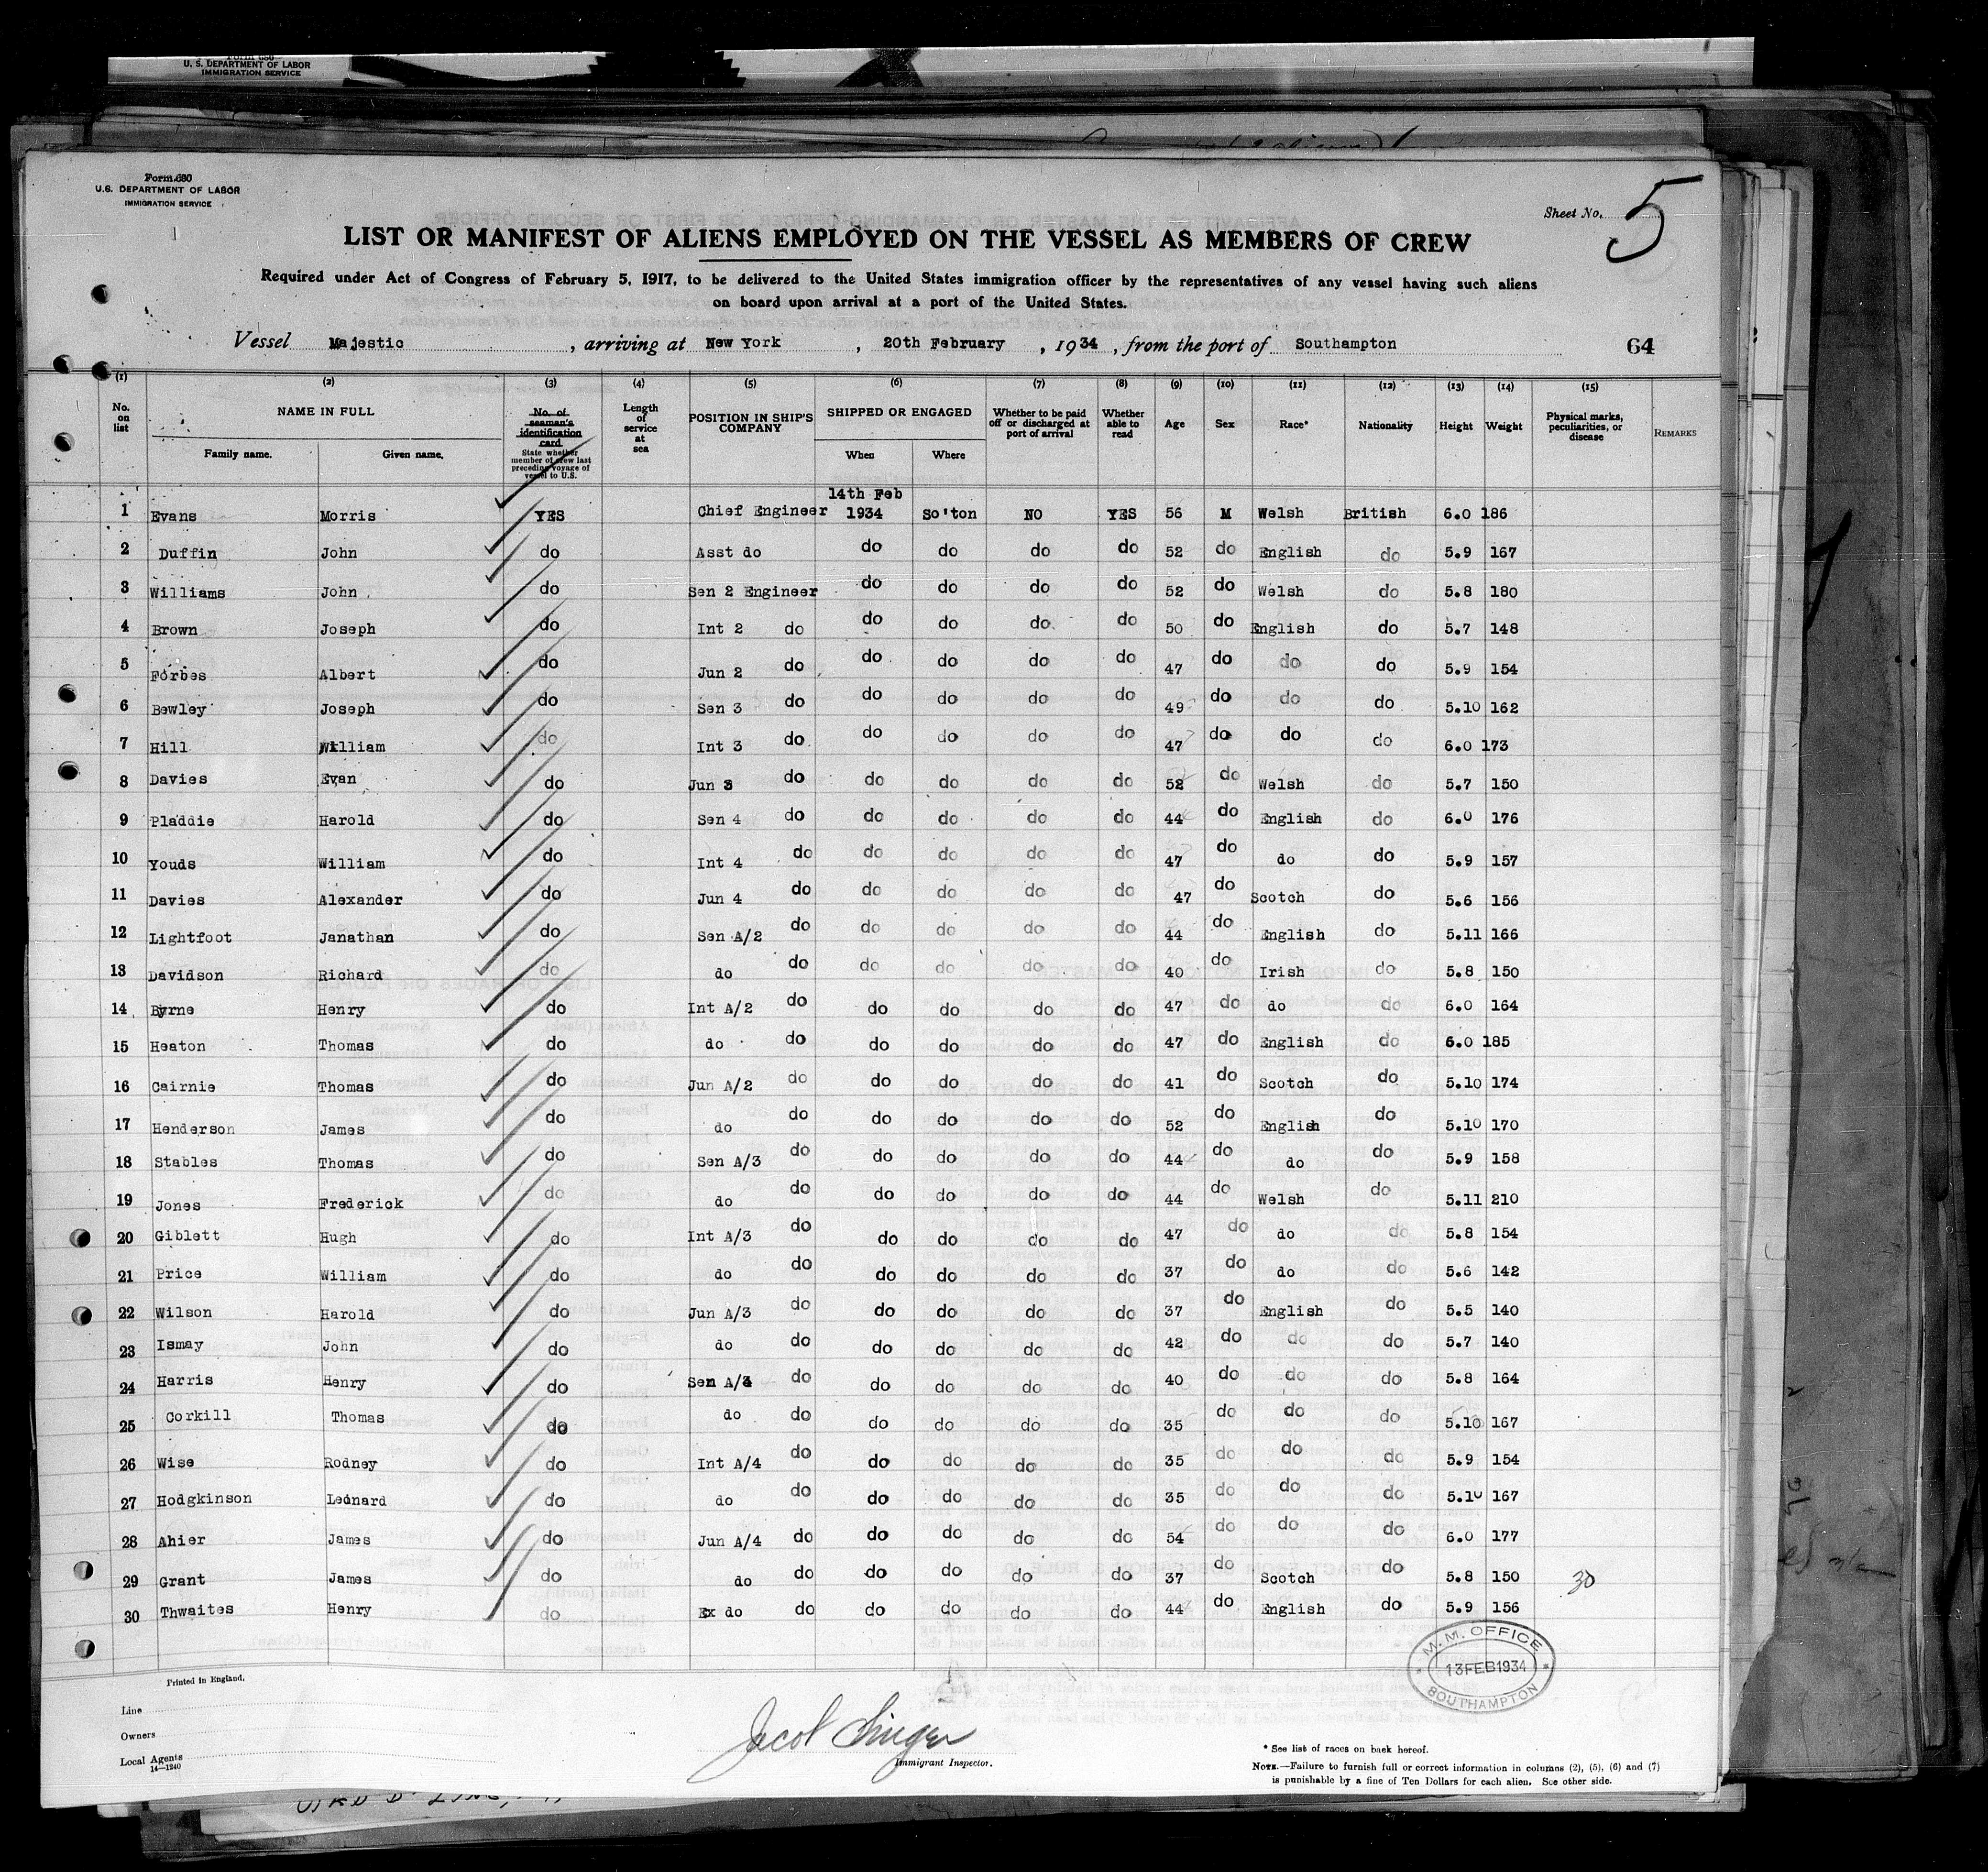 Form 630
U. S. DEPARTMENT OF LABOR
IMMIGRATION SERVICE
Form 680
U.S. DEPARTMENT OF LABOR
IMMIGRATION SERVICE
Sheet No. 5
LIST OR MANIFEST OF ALIENS EMPLOYED ON THE VESSEL AS MEMBERS OF CREW
Required under Act of Congress of February 5, 1917, to be delivered to the United States immigration officer by the representatives of any vessel having such aliens
on board upon arrival at a port of the United States.
Vessel Majestic, arriving at New York, 20th February, 1934, from the port of Southampton 64
(1) (2) (3) (4) (5) (6) (7) (8) (9) (10) (11) (12) (13) (14) (15)
No. on list NAME IN FULL Family name. Given name. No. of seaman's identification card State whether member of crew last preceding voyage of vessel to U.S. Length of service at sea POSITION IN SHIP'S COMPANY SHIPPED OR ENGAGED When Where Whether to be paid off or discharged at port of arrival Whether able to read Age Sex Race* Nationality Height Weight Physical marks, peculiarities, or disease REMARKS
14th Feb
1 Evans Morris YES Chief Engineer 1934 So'ton NO YES 56 M Welsh British 6.0 186
2 Duffin John do Asst do do do do do 52 do English do 5.9 167
3 Williams John do Sen 2 Engineer do do do do 52 do Welsh do 5.8 180
4 Brown Joseph do Int 2 do do do do do 50 do English do 5.7 148
5 Forbes Albert do Jun 2 do do do do do 47 do do do 5.9 154
6 Bewley Joseph do Sen 3 do do do do do 49 do do do 5.10 162
7 Hill William do Int 3 do do do do do 47 do do do 6.0 173
8 Davies Evan do Jun 3 do do do do do 52 do Welsh do 5.7 150
9 Pladdie Harold do Sen 4 do do do do do 44 do English do 6.0 176
10 Youds William do Int 4 do do do do do 47 do do do 5.9 157
11 Davies Alexander do Jun 4 do do do do do 47 do Scotch do 5.6 156
12 Lightfoot Janathan do Sen A/2 do do do do do 44 do English do 5.11 166
13 Davidson Richard do do do do do do do 40 do Irish do 5.8 150
14 Byrne Henry do Int A/2 do do do do do 47 do do do 6.0 164
15 Heaton Thomas do do do do do do do 47 do English do 6.0 185
16 Cairnie Thomas do Jun A/2 do do do do do 41 do Scotch do 5.10 174
17 Henderson James do do do do do do do 52 do English do 5.10 170
18 Stables Thomas do Sen A/3 do do do do do 44 do do do 5.9 158
19 Jones Frederick do do do do do do do 44 do Welsh do 5.11 210
20 Giblett Hugh do Int A/3 do do do do do 47 do do do 5.8 154
21 Price William do do do do do do do 37 do do do 5.6 142
22 Wilson Harold do Jun A/3 do do do do do 37 do English do 5.5 140
23 Ismay John do do do do do do do 42 do do do 5.7 140
24 Harris Henry do Sen A/4 do do do do do 40 do do do 5.8 164
25 Corkill Thomas do do do do do do do 35 do do do 5.10 167
26 Wise Rodney do Int A/4 do do do do do 35 do do do 5.9 154
27 Hodgkinson Leonard do do do do do do do 35 do do do 5.10 167
28 Ahier James do Jun A/4 do do do do do 54 do do do 6.0 177
29 Grant James do do do do do do do 37 do Scotch do 5.8 150 30
30 Thwaites Henry do Ex do do do do do do 44 do English do 5.9 156
M.M. OFFICE
13 FEB 1934
SOUTHAMPTON
Printed in England.
Line
Owners
Local Agents
14—1240
Jacob Singer
Immigrant Inspector.
* See list of races on back hereof.
NOTE.—Failure to furnish full or correct information in columns (2), (5), (6) and (7)
is punishable by a fine of Ten Dollars for each alien. See other side.